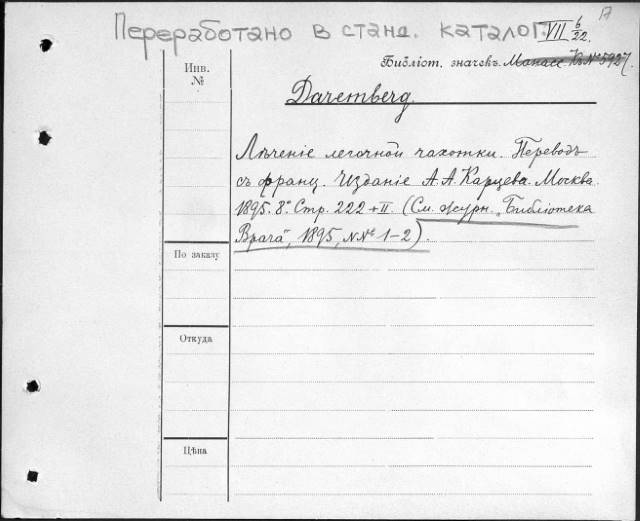 Переработано в станд. каталог. VII 6/22.
Инв. №
Библіот. значекъ. Манасс. Къ № 5927.
Daremberg.
Лѣченіе легочной чахотки. Переводъ
съ франц. Изданіе А. А. Карцева. Москва.
1895. 8°. Стр. 222 + II. (См. журн. „Библіотека
Врача", 1895, №№ 1–2).
По заказу
Откуда
Цѣна